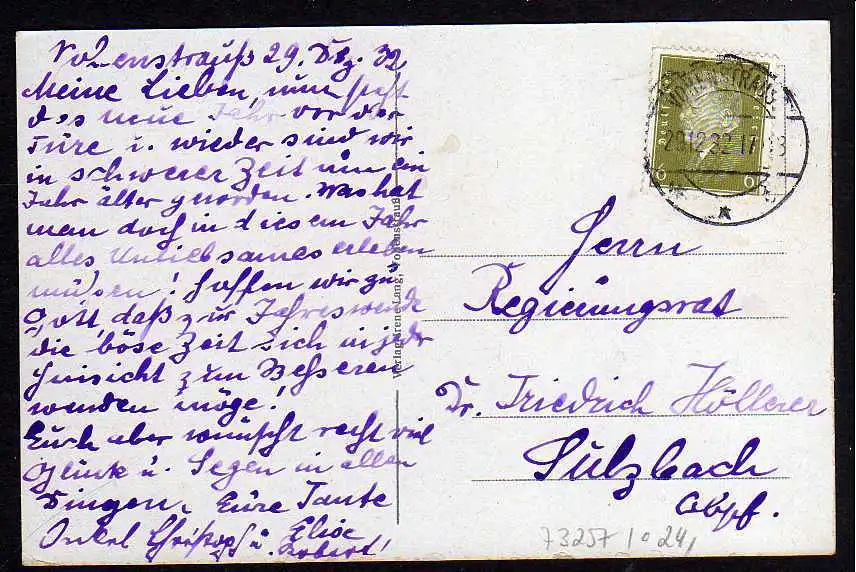 Vohenstrauß 29. Dez. 32.
Meine Lieben, nun steht
das neue Jahr vor der
Türe u. wieder sind wir
in schwerer Zeit um ein
Jahr älter geworden. Was hat
man doch in diesem Jahr
alles Unliebsames erleben
müssen! Hoffen wir zu
Gott, daß zur Jahreswende
die böse Zeit sich in jeder
Hinsicht zum Besseren
wenden möge!
Euch aber wünscht recht viel
Glück u. Segen in allen
Dingen, Eure Tante
Onkel Christoph u. Elise
Robert!
Verlag Irene Lang, Vohenstrauß
6 6
VOHENSTRAUSS
29.12.32.17-18
Herrn
Regierungsrat
Dr. Friedrich Höllerer
Sulzbach
Obpf.
73257 1024